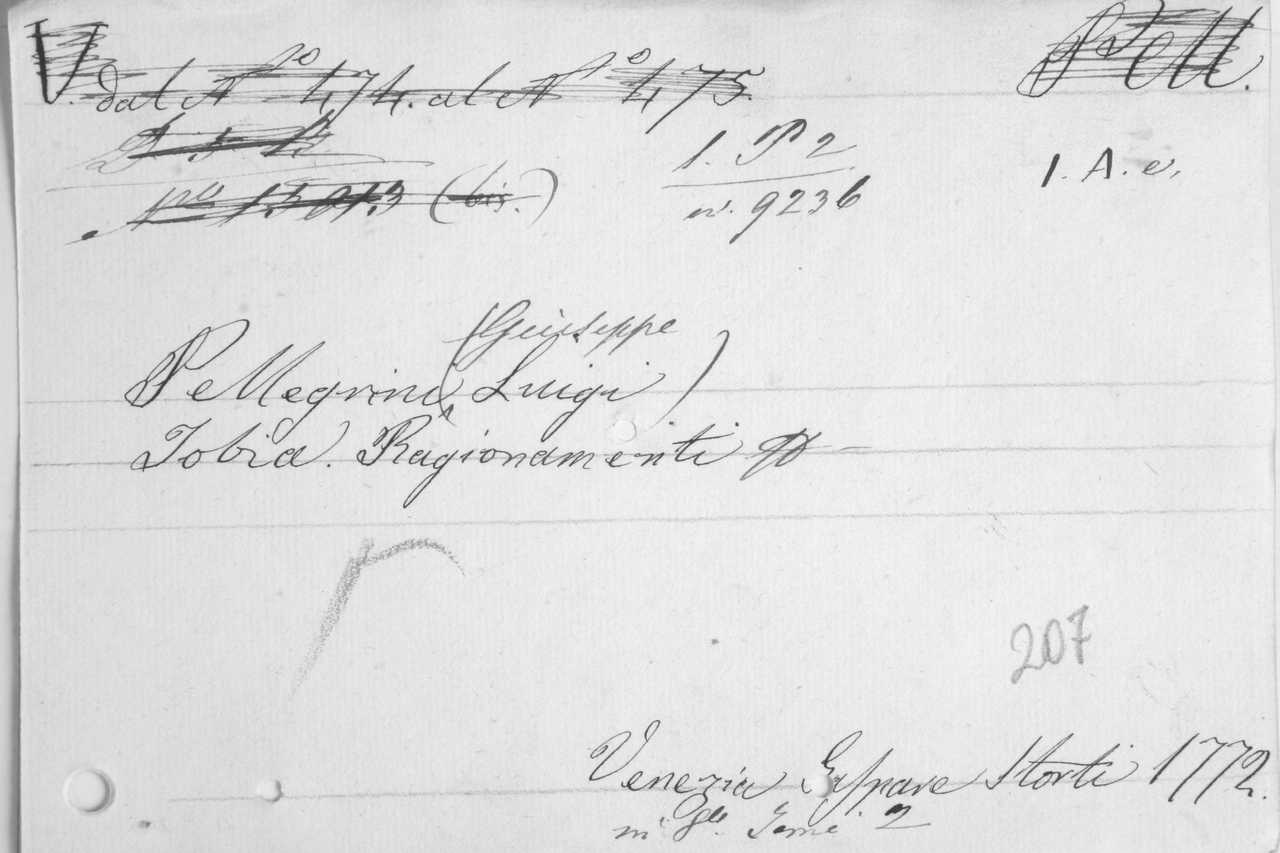 V. dal N° 474. al N° 475.
Pell.
1. P 2
n. 9236
1. A. e.
(bis.)
(Giuseppe
Pellegrini, Luigi)
Tobia. Ragionamenti
207
Venezia Gaspare Storti 1772.
in 8° Tomi 2